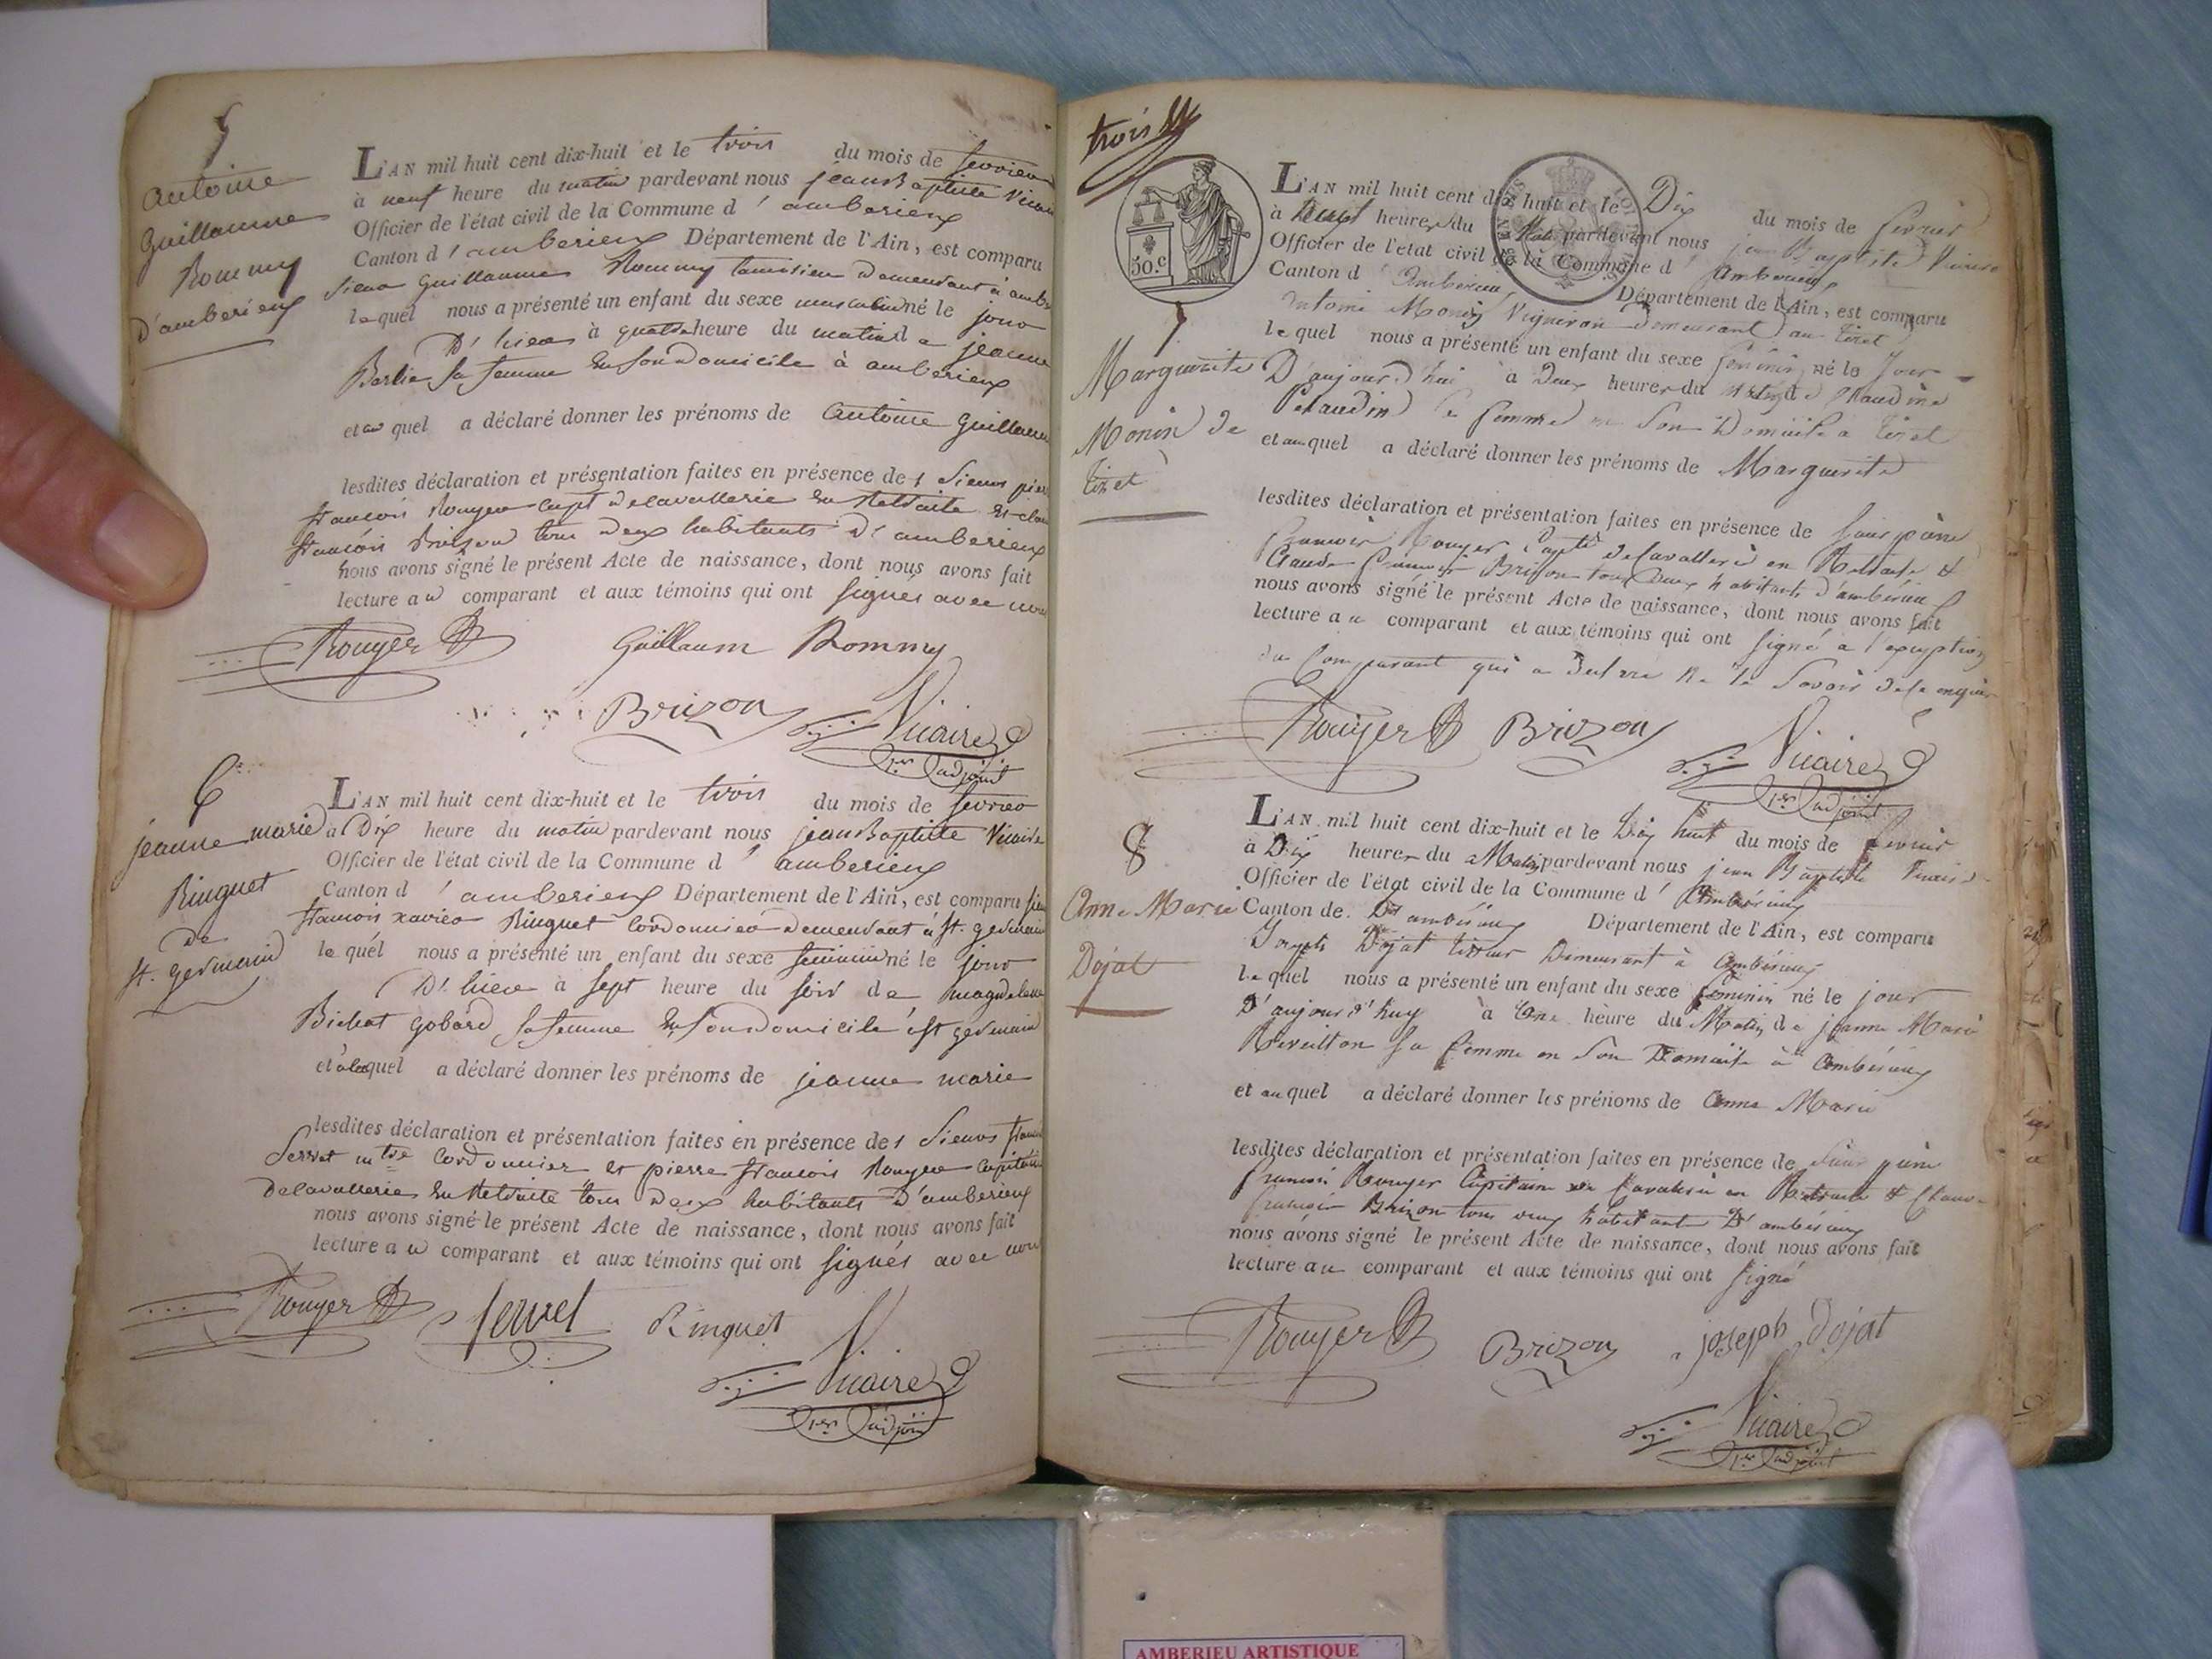 5
antoine
Guillaume
Rommy
d'amberieux
L'AN mil huit cent dix-huit et le trois du mois de fevrier
à neuf heure du matin pardevant nous jean Baptiste Vicaire
Officier de l'état civil de la Commune d' amberieux
Canton d'amberieux Département de l'Ain, est comparu
sieur Guillaume Rommy demeurant à
lequel nous a présenté un enfant du sexe masculin né le jour
D'hier à quatre heure du matin de jeanne
sa femme en son domicile à amberieux
et au quel a déclaré donner les prénoms de antoine Guillaume
lesdites déclaration et présentation faites en présence des Sieurs
francois Rouyer capt de cavallerie en Retraite et
francois Brizon tous deux habitants d'amberieux
nous avons signé le présent Acte de naissance, dont nous avons fait
lecture au comparant et aux témoins qui ont signés avec nous
Rouyer Guillaum Rommy
Brizon Vicaire
1er adjoint
6
jeanne marie
Ringuet
de
st. germain
L'AN mil huit cent dix-huit et le trois du mois de fevrier
à Dix heure du matin pardevant nous jean Baptiste Vicaire
Officier de l'état civil de la Commune d' amberieux
Canton d' amberieux Département de l'Ain, est comparu
francois xavier Ringuet Cordonnier demeurant à st. germain
le quel nous a présenté un enfant du sexe feminin né le jour
D'hier à sept heure du soir de magdelaine
Bichat gobard sa femme en son domicile à st germain
et à laquel a déclaré donner les prénoms de jeanne marie
lesdites déclaration et présentation faites en présence des Sieurs
Servet mtre Cordonnier et pierre francois Rouyer Capitaine
De cavallerie en Retraite tous deux habitants D'amberieux
nous avons signé le présent Acte de naissance, dont nous avons fait
lecture au comparant et aux témoins qui ont signés avec nous
Rouyer Servet Ringuet
Vicaire
1er adjoint
trois
50.c
7
Marguerite
Monin de
Tiret
L'AN mil huit cent dix-huit et le Dix du mois de fevrier
à heures du Matin pardevant nous jean Baptiste Vicaire
Officier de l'état civil de la Commune d' Amberieux
Canton d' Amberieux Département de l'Ain, est comparu
antoine Monin Vigneron Demeurant au Tiret
le quel nous a présenté un enfant du sexe féminin né le Jour
D'aujourd'hui à Deux heures du Matin de Claudine
Petaudin sa femme en son Domicile a Tiret
et au quel a déclaré donner les prénoms de Marguerite
lesdites déclaration et présentation faites en présence de sieurs pierre
francois Rouyer Capte de Cavallerie en Retraite &
Claude francois Brizon tous Deux habitants d'amberieux
nous avons signé le présent Acte de naissance, dont nous avons fait
lecture au comparant et aux témoins qui ont signé a l'exeption
du Comparant qui a declaré ne le savoir de ce enquis
Rouyer Brizon
Vicaire
1er adjoint
8
Anne Marie
Dojat
L'AN mil huit cent dix-huit et le Dix huit du mois de fevrier
à Dix heures du Matin pardevant nous jean Baptiste Vicaire
Officier de l'état civil de la Commune d' Ambérieux
Canton de D'ambérieux Département de l'Ain, est comparu
Joseph Dojat Demeurant à Ambérieux
le quel nous a présenté un enfant du sexe feminin né le jour
D'aujourd'huy à Une heure du Matin de jeanne Marie
Reveillon sa femme en son Domicile à Ambérieux
et au quel a déclaré donner les prénoms de Anne Marie
lesdites déclaration et présentation faites en présence de sieurs pierre
francois Rouyer Capitaine de Cavalerie en Retraite & Claude
francois Brizon tous deux habitants D'ambérieux
nous avons signé le présent Acte de naissance, dont nous avons fait
lecture au comparant et aux témoins qui ont signé
Rouyer Brizon joseph Dojat
Vicaire
1er adjoint
AMBERIEU ARTISTIQUE